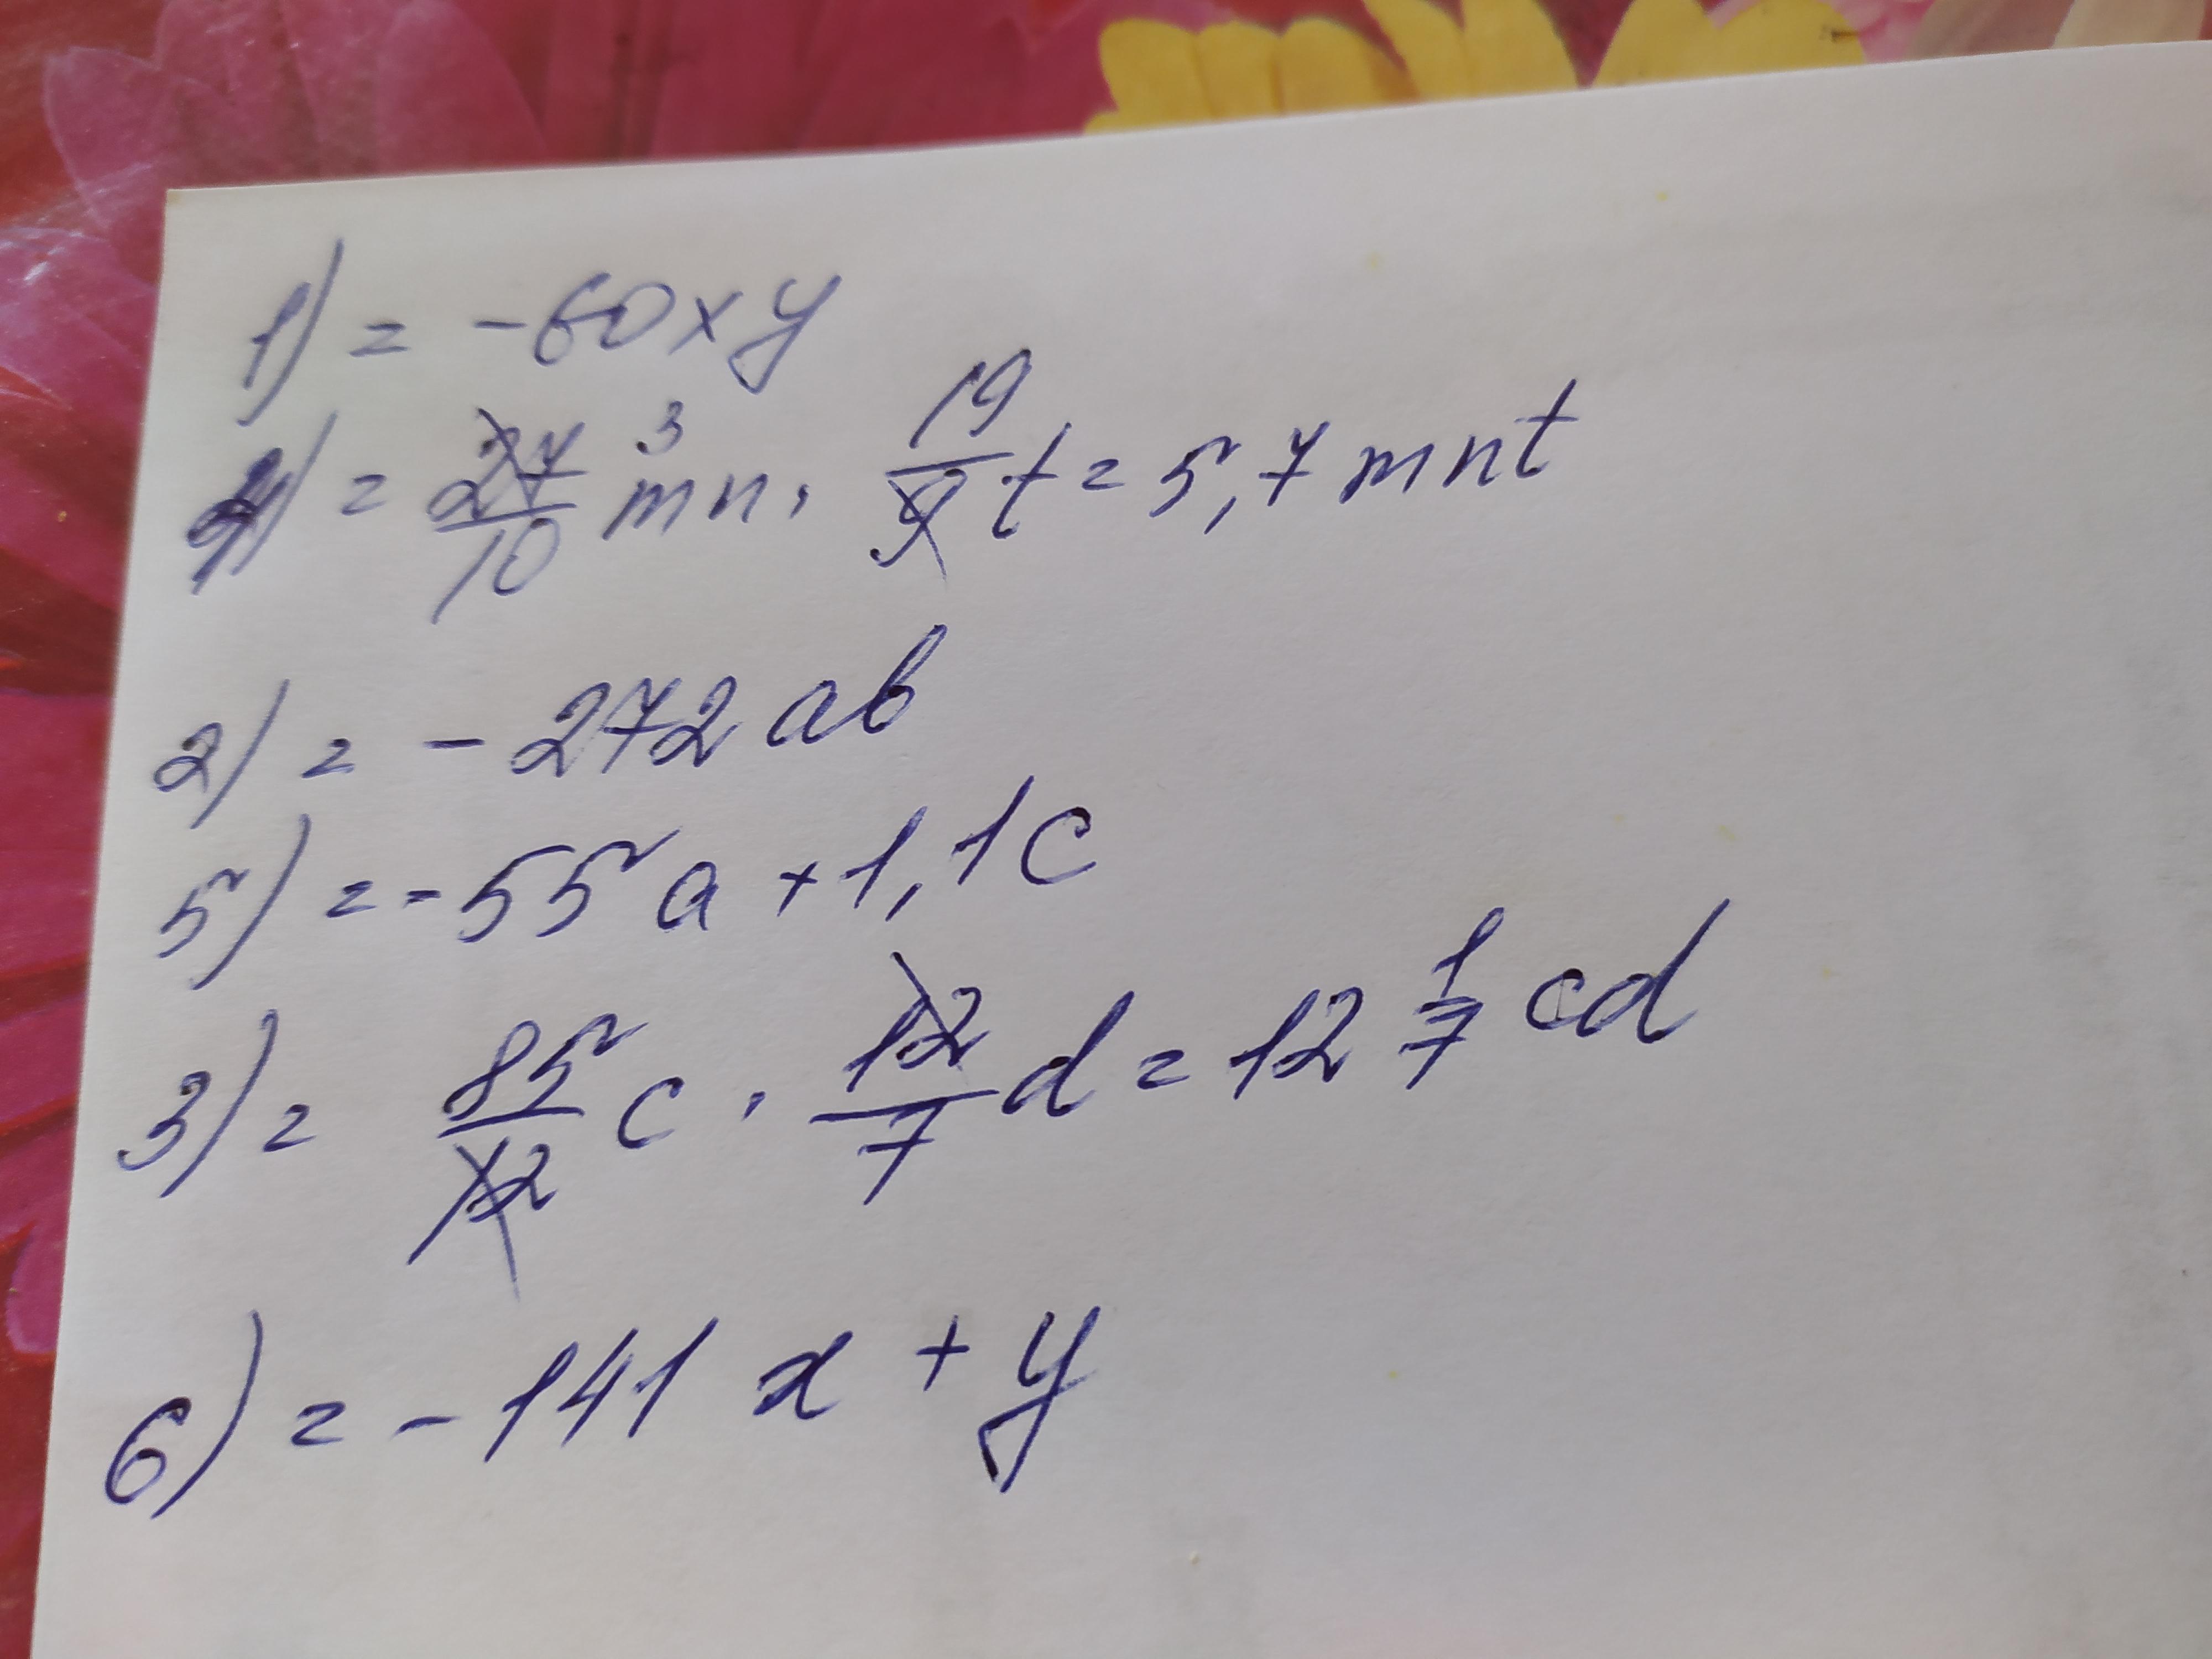 1) = -60xy
4) = 27/10 3 mn · 19/9 t = 5,7 mnt
2) = -272 ab
5) = -55a + 1,1c
3) = 85/12 c · 12/7 d = 12 1/7 cd
6) = -141 x + y